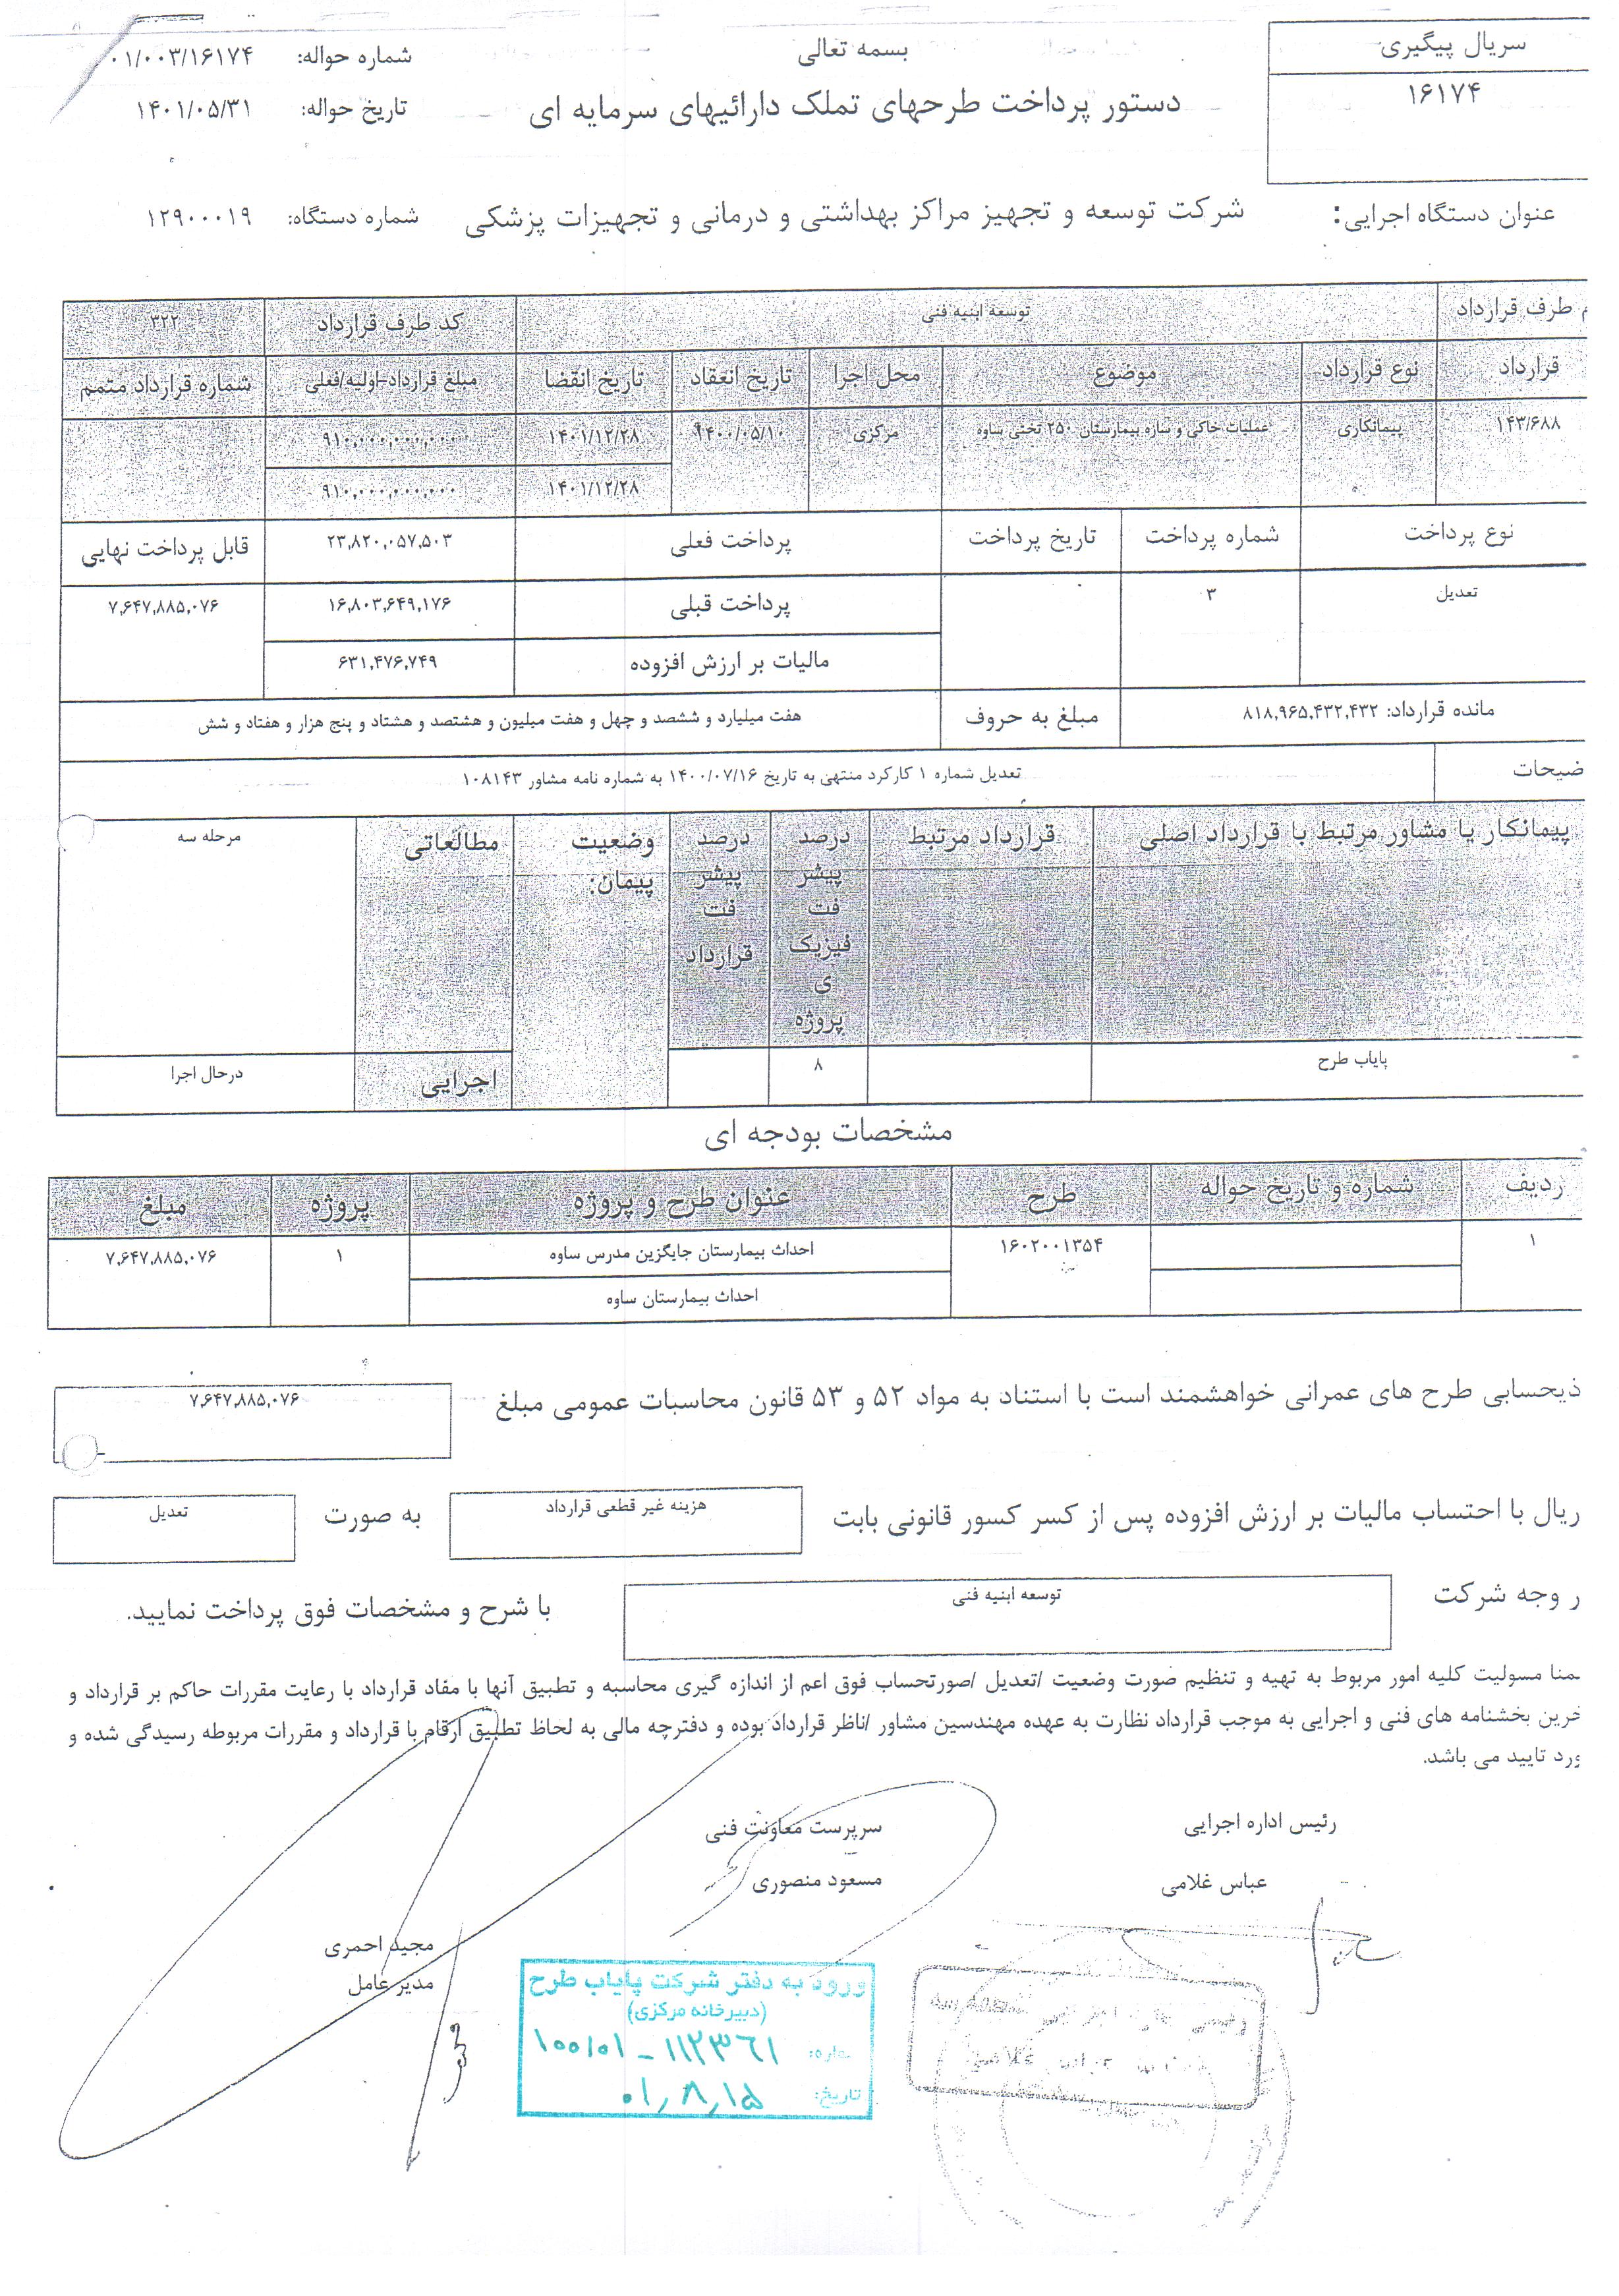 بسمه تعالی
سریال پیگیری
۱۶۱۷۴
شماره حواله: ۰۱/۰۰۳/۱۶۱۷۴
دستور پرداخت طرحهای تملک دارائیهای سرمایه ای
تاریخ حواله: ۱۴۰۱/۰۵/۳۱
عنوان دستگاه اجرایی: شرکت توسعه و تجهیز مراکز بهداشتی و درمانی و تجهیزات پزشکی
شماره دستگاه: ۱۲۹۰۰۰۱۹
م طرف قرارداد توسعه ابنیه فنی کد طرف قرارداد ۳۲۲
قرارداد نوع قرارداد موضوع محل اجرا تاریخ انعقاد تاریخ انقضا مبلغ قرارداد-اولیه/فعلی شماره قرارداد متمم
۱۴۳/۶۸۸ پیمانکاری عملیات خاکی و سازه بیمارستان ۲۵۰ تختی ساوه مرکزی ۱۴۰۰/۰۵/۱۰ ۱۴۰۱/۱۲/۲۸ ۹۱۰,۰۰۰,۰۰۰,۰۰۰
۱۴۰۱/۱۲/۲۸ ۹۱۰,۰۰۰,۰۰۰,۰۰۰
نوع پرداخت شماره پرداخت تاریخ پرداخت پرداخت فعلی ۲۳,۸۲۰,۰۵۷,۵۰۳ قابل پرداخت نهایی
تعدیل ۳ پرداخت قبلی ۱۶,۸۰۳,۶۴۹,۱۷۶ ۷,۶۴۷,۸۸۵,۰۷۶
مالیات بر ارزش افزوده ۶۳۱,۴۷۶,۷۴۹
مانده قرارداد: ۸۱۸,۹۶۵,۴۳۲,۴۳۲ مبلغ به حروف هفت میلیارد و ششصد و چهل و هفت میلیون و هشتصد و هشتاد و پنج هزار و هفتاد و شش
ضیحات تعدیل شماره ۱ کارکرد منتهی به تاریخ ۱۴۰۰/۰۷/۱۶ به شماره نامه مشاور ۱۰۸۱۴۳
پیمانکار یا مشاور مرتبط با قرارداد اصلی قرارداد مرتبط درصد پیشرفت فیزیکی پروژه درصد پیشرفت قرارداد وضعیت پیمان: مطالعاتی مرحله سه
پایاب طرح ۸ اجرایی درحال اجرا
مشخصات بودجه ای
ردیف شماره و تاریخ حواله طرح عنوان طرح و پروژه پروژه مبلغ
۱ ۱۶۰۲۰۰۱۳۵۴ احداث بیمارستان جایگزین مدرس ساوه ۱ ۷,۶۴۷,۸۸۵,۰۷۶
احداث بیمارستان ساوه
ذیحسابی طرح های عمرانی خواهشمند است با استناد به مواد ۵۲ و ۵۳ قانون محاسبات عمومی مبلغ ۷,۶۴۷,۸۸۵,۰۷۶
ریال با احتساب مالیات بر ارزش افزوده پس از کسر کسور قانونی بابت هزینه غیر قطعی قرارداد به صورت تعدیل
ر وجه شرکت توسعه ابنیه فنی با شرح و مشخصات فوق پرداخت نمایید.
ممنا مسولیت کلیه امور مربوط به تهیه و تنظیم صورت وضعیت /تعدیل /صورتحساب فوق اعم از اندازه گیری محاسبه و تطبیق آنها با مفاد قرارداد با رعایت مقررات حاکم بر قرارداد و
خرین بخشنامه های فنی و اجرایی به موجب قرارداد نظارت به عهده مهندسین مشاور /ناظر قرارداد بوده و دفترچه مالی به لحاظ تطبیق ارقام با قرارداد و مقررات مربوطه رسیدگی شده و
ورد تایید می باشد.
رئیس اداره اجرایی
عباس غلامی
سرپرست معاونت فنی
مسعود منصوری
مجید احمری
مدیر عامل
ورود به دفتر شرکت پایاب طرح
(دبیرخانه مرکزی)
۱۰۰/۰۱ - ۱۱۲۳۶۱
تاریخ: ۰۱,۸,۱۵